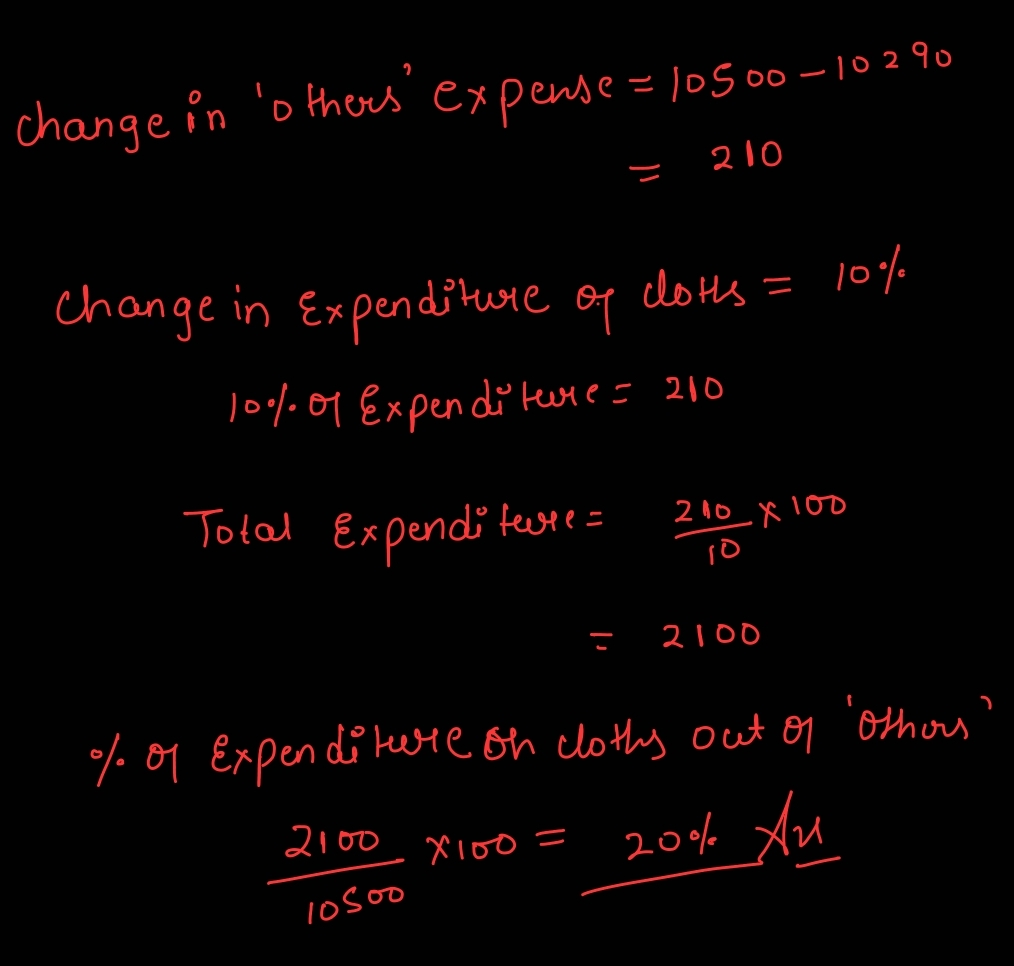 Change in 'others' Expense = 10500 - 10290
= 210
Change in Expenditure of cloths = 10%
10% of Expenditure = 210
Total Expenditure = 210/10 × 100
= 2100
% of Expenditure on cloths out of 'others'
2100/10500 × 100 = 20% Au